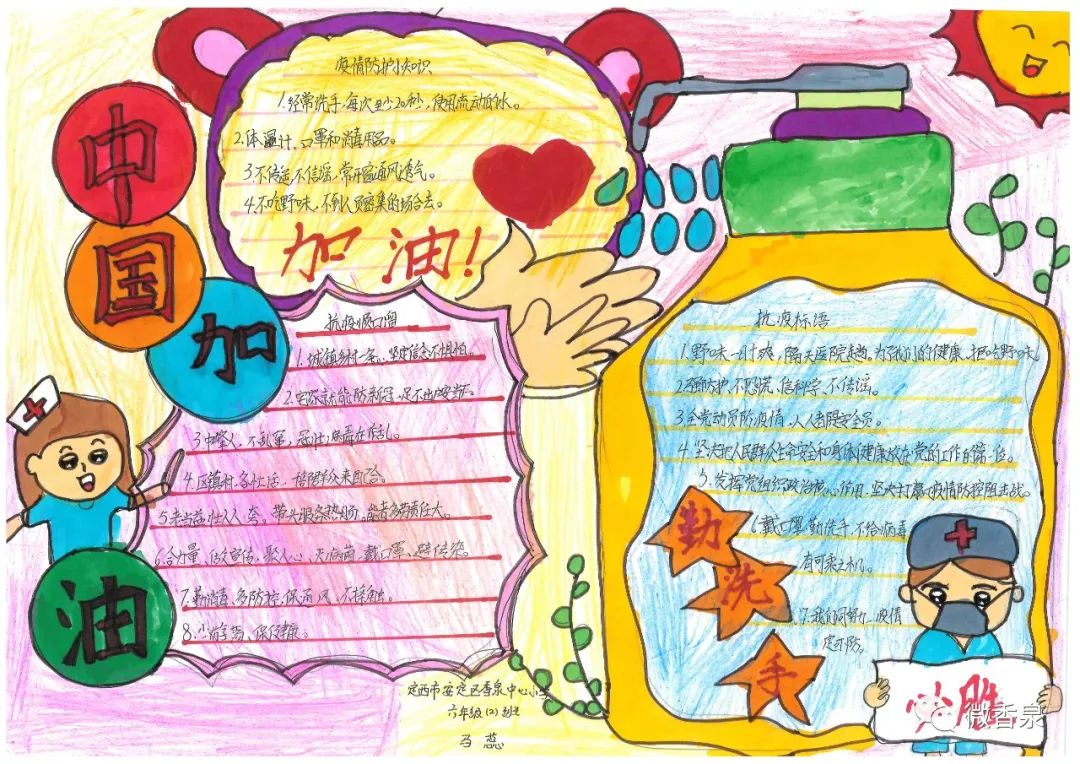 中
国
加
油
疫情防护小知识
1.经常洗手,每次至少20秒,使用流动的水。
2.体温计,口罩和消毒用品。
3.不传谣,不信谣,常开窗通风透气。
4.不吃野味,不到人员密集的场合去。
加油!
抗疫顺口溜
1.城镇乡村一条心,坚定信念不惧怕。
3.中华人,不乱
4.区镇村
5.
热心肠,能者多劳责任大。
6.
做宣传,聚人心,灭病菌,戴口罩,避传染。
7.勤消毒,多防控,保通风,不接触。
8.
保健康。
抗疫标语
1.野味一时爽,隔天医院走趟。为了我们的健康,拒吃野味。
防护,不恐慌,信科学,不传谣。
3.全党动员防疫情,人人当
安全员。
4.坚决把人民群众生命安全和身体健康放在党的工作的第一位。
5.发挥党组织政治核心作用,坚决打赢疫情防控阻击战。
6.戴口罩,勤洗手,不给病毒
有可乘之机。
7.我们同努力,疫情
定可防。
勤
洗
手
必胜
定西市安定区香泉中心小学
六年级(2)班
马蕊
微香泉